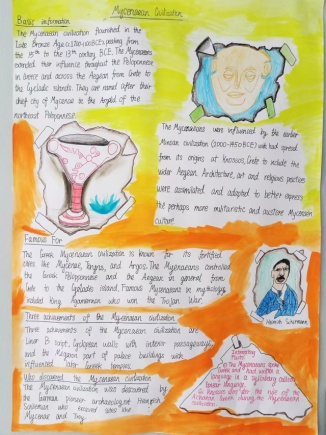 Mycenaean Civilization
Basic information
The Mycenaean civilization flourished in the
Late Bronze Age peaking from
the 15th to the 13th century BCE. The Mycenaeans
extended their influence throughout the Peloponnese
in Greece and across the Aegean from Crete to
the Cycladic islands. They are named after their
chief city of Mycenae in the Argolid of the
northeast Peloponnese.
The Mycenaeans were influenced by the earlier
Minoan civilization (2000-1450 BCE) which had spread
from its origins at Knossos, Crete to include the
wider Aegean. Architecture, art and religious practices
were assimilated and adapted to better express
the perhaps more militaristic and austere Mycenaean
culture.
Famous For
The Greek Mycenaean civilization is known for its fortified
cities like Mycenae, Tiryns, and Argos. The Mycenaeans controlled
the Greek Peloponnese and the Aegean in general from
Crete to the Cycladic island. Famous Mycenaeans in mythology
included King Agamemnon who won the Trojan War.
Heinrich Schliemann
Three achievements of the Mycenaean civilization
Three achievements of the Mycenaean civilization are
Linear B script, Cyclopean walls with interior passageways
and the Megaron part of palace buildings with
influenced later Greek temples.
Who discovered the Mycenaean Civilization
The Mycenaean civilization was discovered by
the German pioneer archaeologist Heinrich
Schliemann who excavated sites like
Mycenae and Troy.
Interesting
Facts
The Mycenaeans spoke
Greek and had written a
language in a syllabary called
Linear
the rise of the
during the Mycenaean